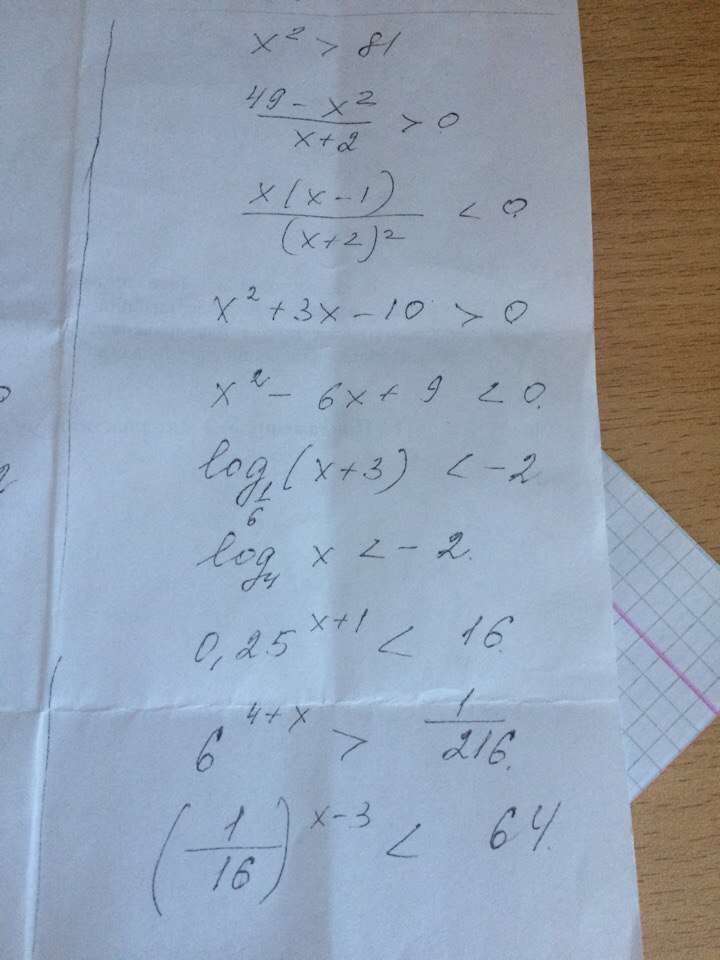 x² > 81
(49 - x²)/(x+2) > 0
x(x-1)/(x+2)² < 0
x² + 3x - 10 > 0
x² - 6x + 9 < 0.
log_{1/6} (x+3) < -2
log_4 x < -2.
0,25^{x+1} < 16.
6^{4+x} > 1/216.
(1/16)^{x-3} < 64.